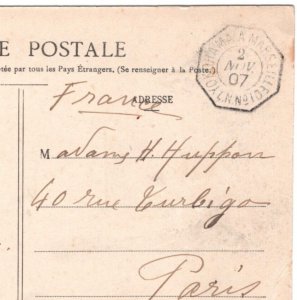 E POSTALE
tée par tous les Pays Étrangers, (Se renseigner à la Poste.)
YOKOHAMA A MARSEILLE
2
NOV
07
France
ADRESSE
Madame H. Huppon
40 rue Turbigo
Paris